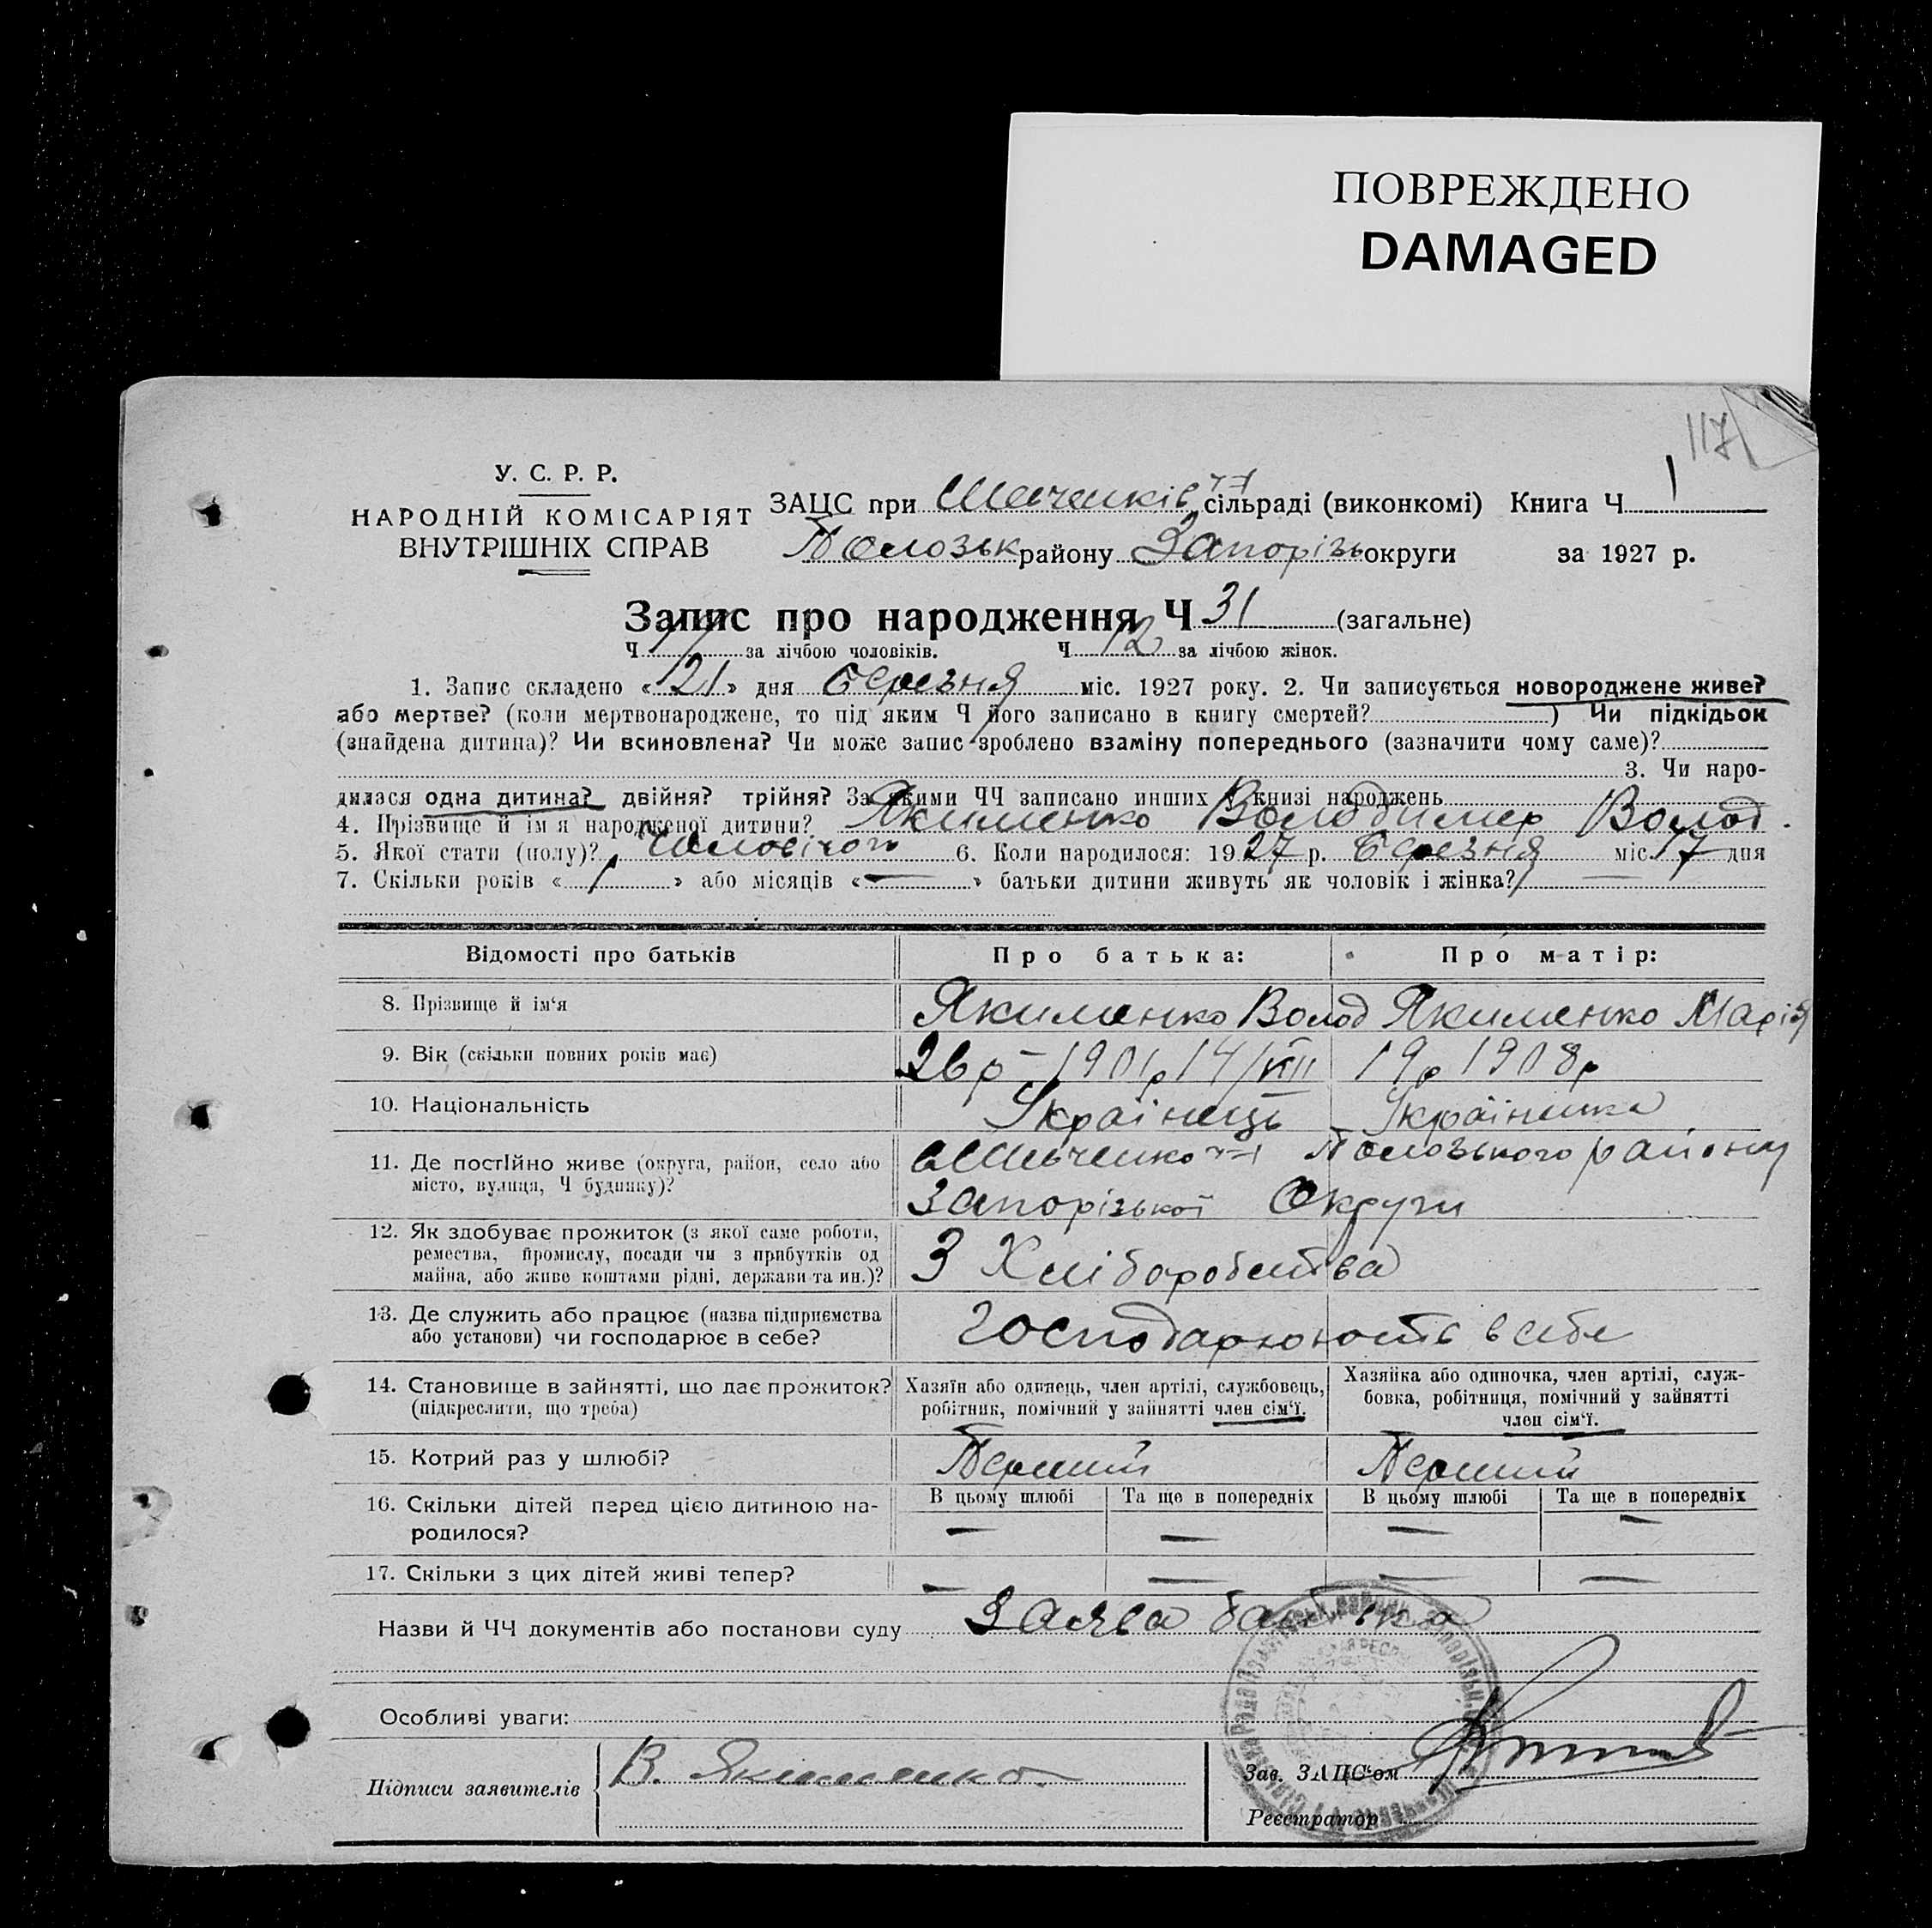 ПОВРЕЖДЕНО
DAMAGED
117
У. С. Р. Р.
НАРОДНІЙ КОМІСАРІЯТ
ВНУТРІШНІХ СПРАВ
ЗАЦС при Шевченків сільраді (виконкомі) Книга Ч 1
Полозьк району Запорізь округи за 1927 р.
Запис про народження Ч 31 (загальне)
Ч за лічбою чоловіків. Ч 12 за лічбою жінок.
1. Запис складено «21» дня березня міс. 1927 року. 2. Чи записується новороджене живе?
або мертве? (коли мертвонароджене, то під яким Ч його записано в книгу смертей? ) Чи підкідьок
(знайдена дитина)? Чи всиновлена? Чи може запис зроблено взаміну попереднього (зазначити чому саме)?
3. Чи наро-
дилася одна дитина? двійня? трійня? За якими ЧЧ записано инших у книзі народжень
4. Прізвище й ім'я народженої дитини? Якименко Володимир Волод.
5. Якої стати (полу)? Чоловічого 6. Коли народилося: 1927 р. березня міс. 17 дня
7. Скільки років «1» або місяців «—» батьки дитини живуть як чоловік і жінка? —
Відомості про батьків Про батька: Про матір:
8. Прізвище й ім'я Якименко Волод Якименко Марія
9. Вік (скільки повних років має) 26 р – 1901 р 14/VII 19 р 1908 р
10. Національність Українець Українка
11. Де постійно живе (округа, район, село або Полозького району
місто, вулиця, Ч будинку)? Запорізької Округи
12. Як здобуває прожиток (з якої саме роботи,
ремества, промислу, посади чи з прибутків од
майна, або живе коштами рідні, держави та ин.)? З Хліборобства
13. Де служить або працює (назва підприємства
або установи) чи господарює в себе? господарюють в себе
14. Становище в зайнятті, що дає прожиток?
(підкреслити, що треба)
Хазяїн або одинець, член артілі, службовець,
робітник, помічний у зайнятті член сім'ї.
Хазяйка або одиночка, член артілі, служ-
бовка, робітниця, помічний у зайнятті
член сім'ї.
15. Котрий раз у шлюбі? Перший Перший
16. Скільки дітей перед цією дитиною на-
родилося?
В цьому шлюбі Та ще в попередніх В цьому шлюбі Та ще в попередніх
— — — —
17. Скільки з цих дітей живі тепер? — — — —
Назви й ЧЧ документів або постанови суду Заява батька
Особливі уваги:
Підписи заявителів В. Якименко
Зав. ЗАЦС'ом
Реєстратор